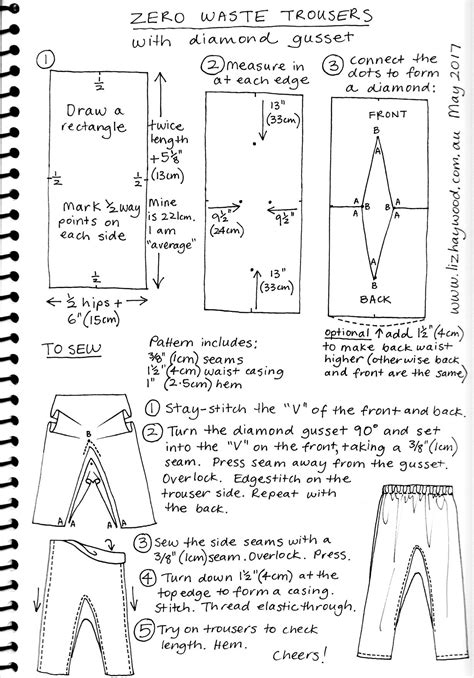 ZERO WASTE TROUSERS
with diamond gusset
www.lizhaywood.com.au May 2017
①
½
Draw a
rectangle
½
½
Mark ½ way
points on
each side
½
twice
length
+5⅛"
(13cm)
Mine
is 221cm.
I am
"average"
← ½ hips + →
6" (15cm)
② Measure in
at each edge
13"
(33cm)
9½"
(24cm)
9½"
13"
(33cm)
③ Connect the
dots to form
a diamond:
FRONT
B
A
A
A
B
B
A
A
A
B
BACK
optional ↑ add 1½" (4cm)
to make back waist
higher (otherwise back
and front are the same)
TO SEW
Pattern includes:
⅜" (1cm) seams
1½" (4cm) waist casing
1" (2.5cm) hem
B
A
A
A
A
① Stay-stitch the "V" of the front and back.
② Turn the diamond gusset 90° and set
into the "V" on the front, taking a ⅜" (1cm)
seam. Press seam away from the gusset.
Overlock. Edgestitch on the
trouser side. Repeat with
the back.
③ Sew the side seams with a
3/8" (1cm) seam. Overlock. Press.
④ Turn down 1½" (4cm) at the
top edge to form a casing.
Stitch. Thread elastic through.
⑤ Try on trousers to check
length. Hem.
Cheers!